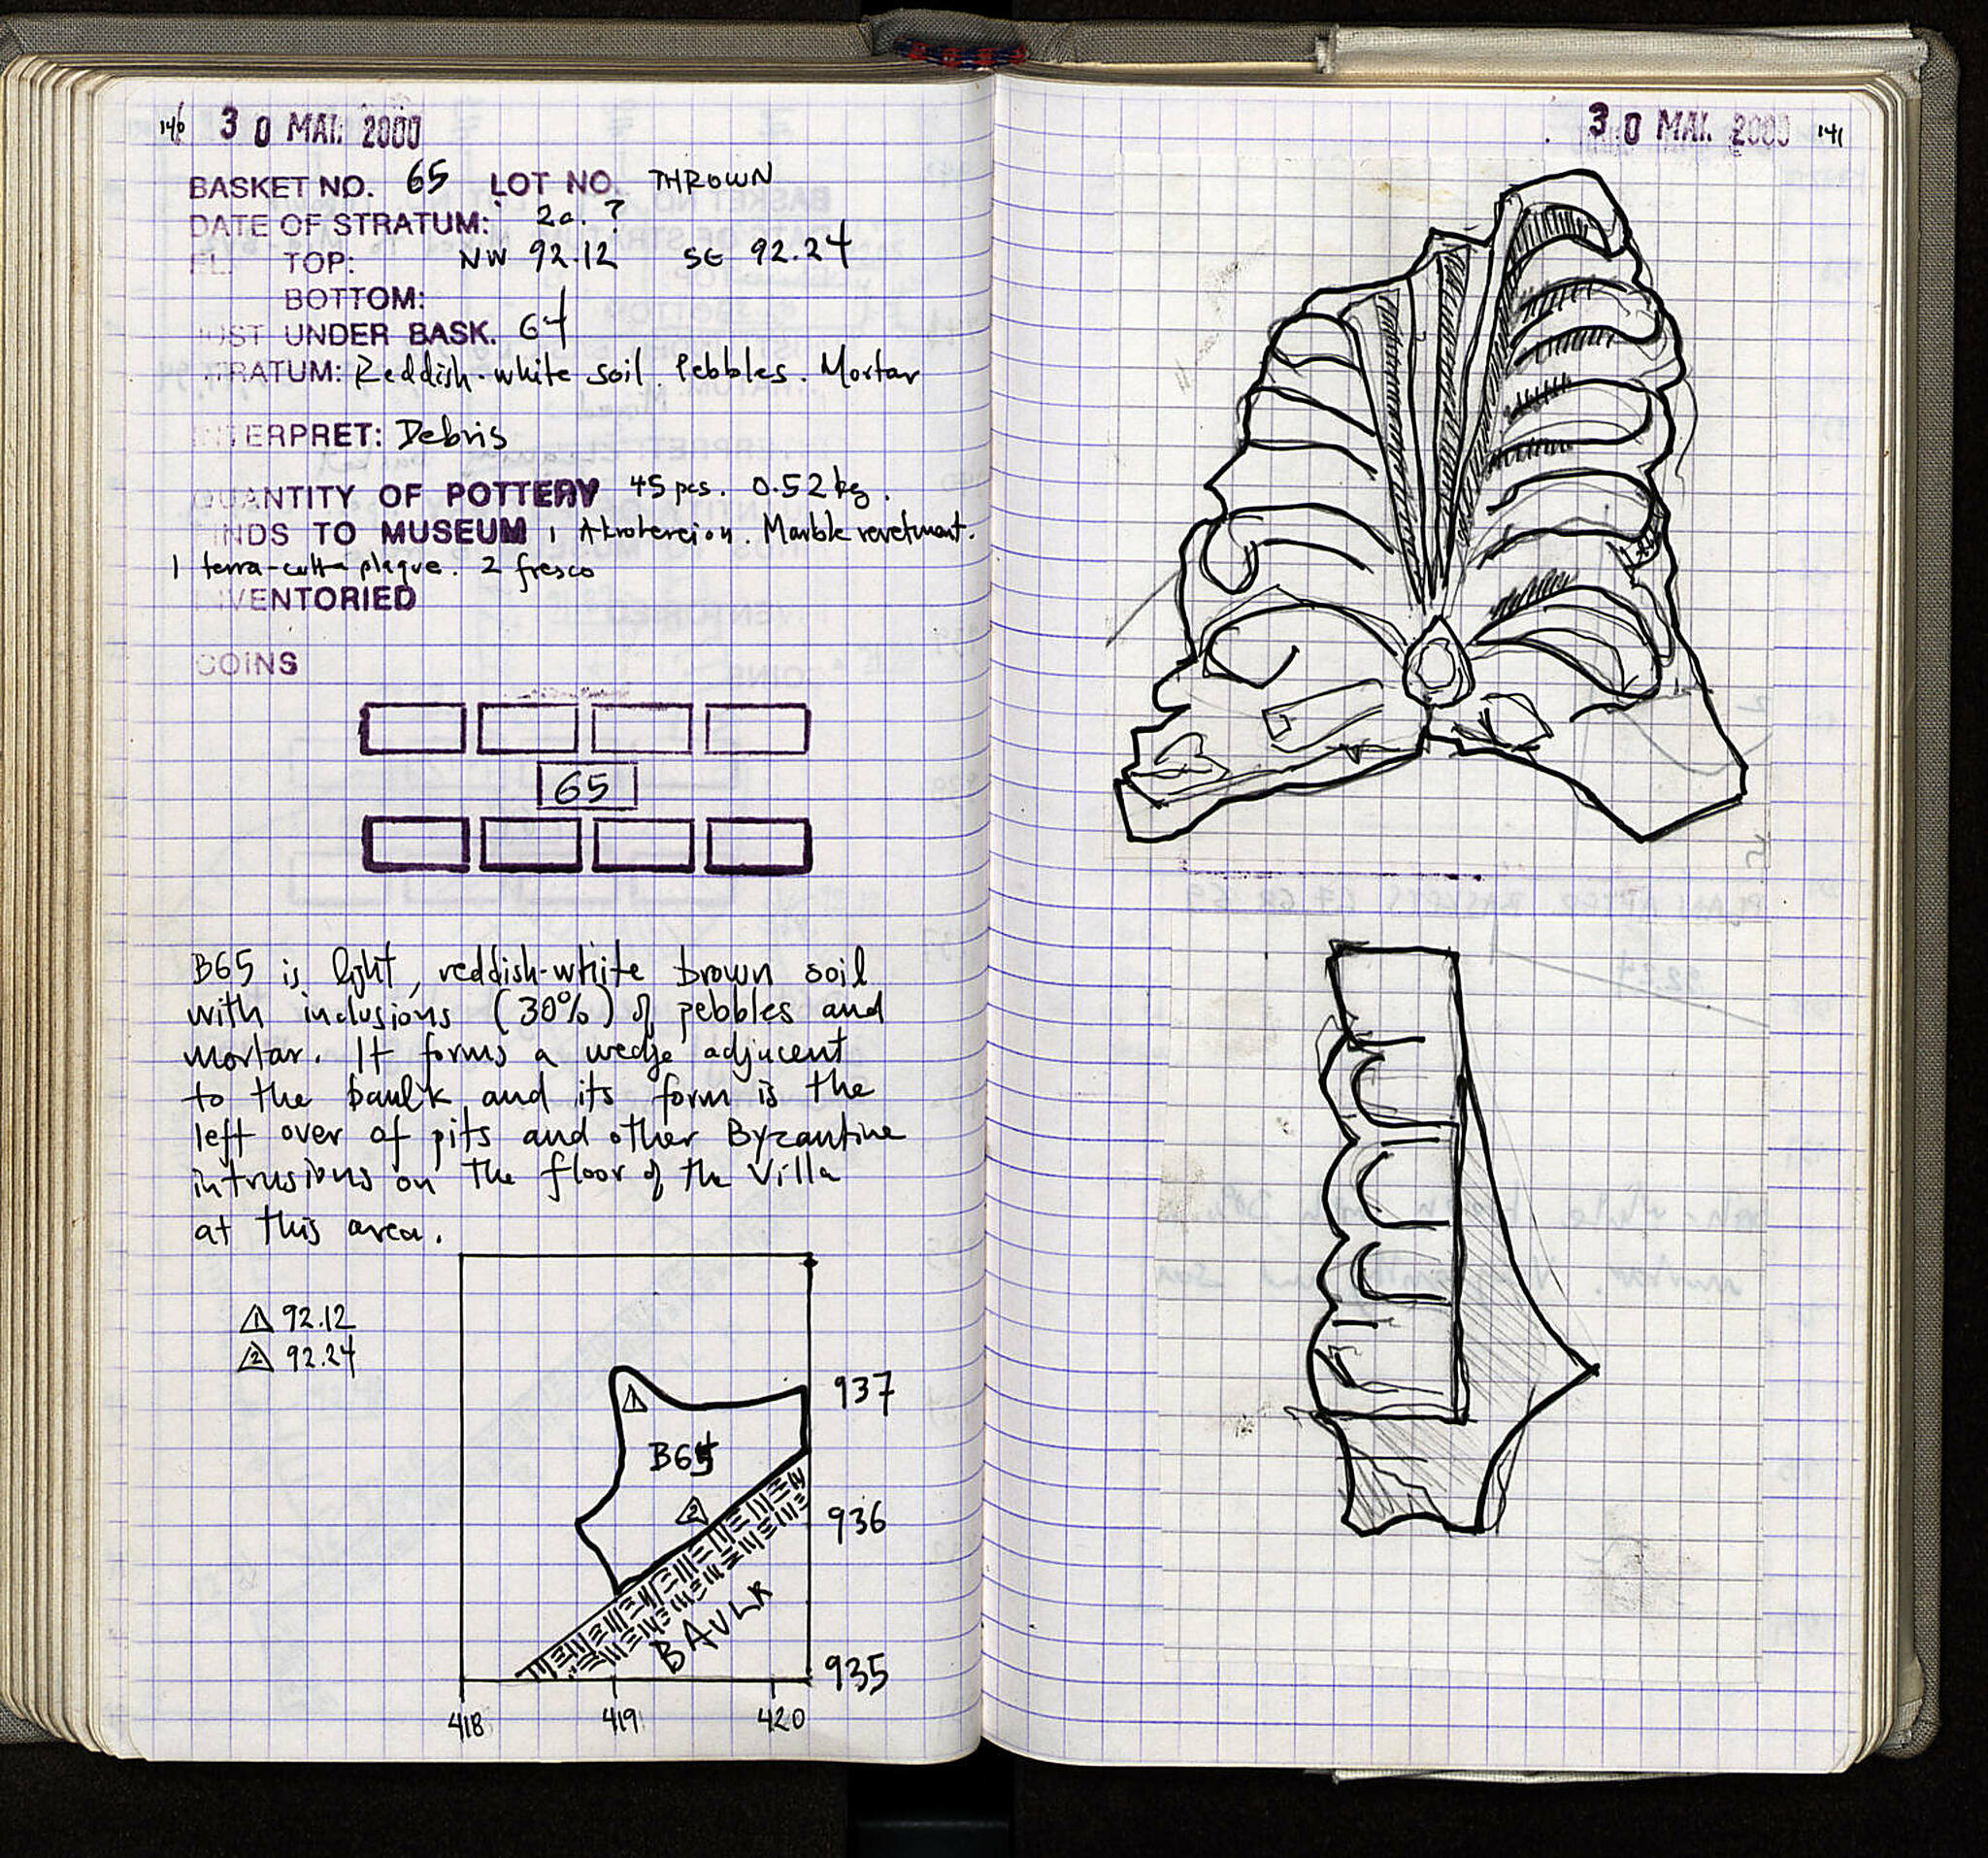 140 30 MAI 2000
BASKET NO. 65 LOT NO. THROWN
DATE OF STRATUM: 2c. ?
EL. TOP: NW 92.12 SE 92.24
BOTTOM:
JUST UNDER BASK. 64
STRATUM: Reddish-white soil. Pebbles. Mortar
INTERPRET: Debris
QUANTITY OF POTTERY 45 pcs. 0.52 kg.
FINDS TO MUSEUM 1 Akrotereion. Marble revetment.
1 terra-cotta plaque. 2 fresco
INVENTORIED
COINS
65
B65 is light, reddish-white brown soil
with inclusions (30%) of pebbles and
mortar. It forms a wedge adjacent
to the baulk and its form is the
left over of pits and other Byzantine
intrusions on the floor of the Villa
at this area.
1 92.12
2 92.24
1
937
B65
2
936
BAULK
935
418 419 420
30 MAI 2000 141